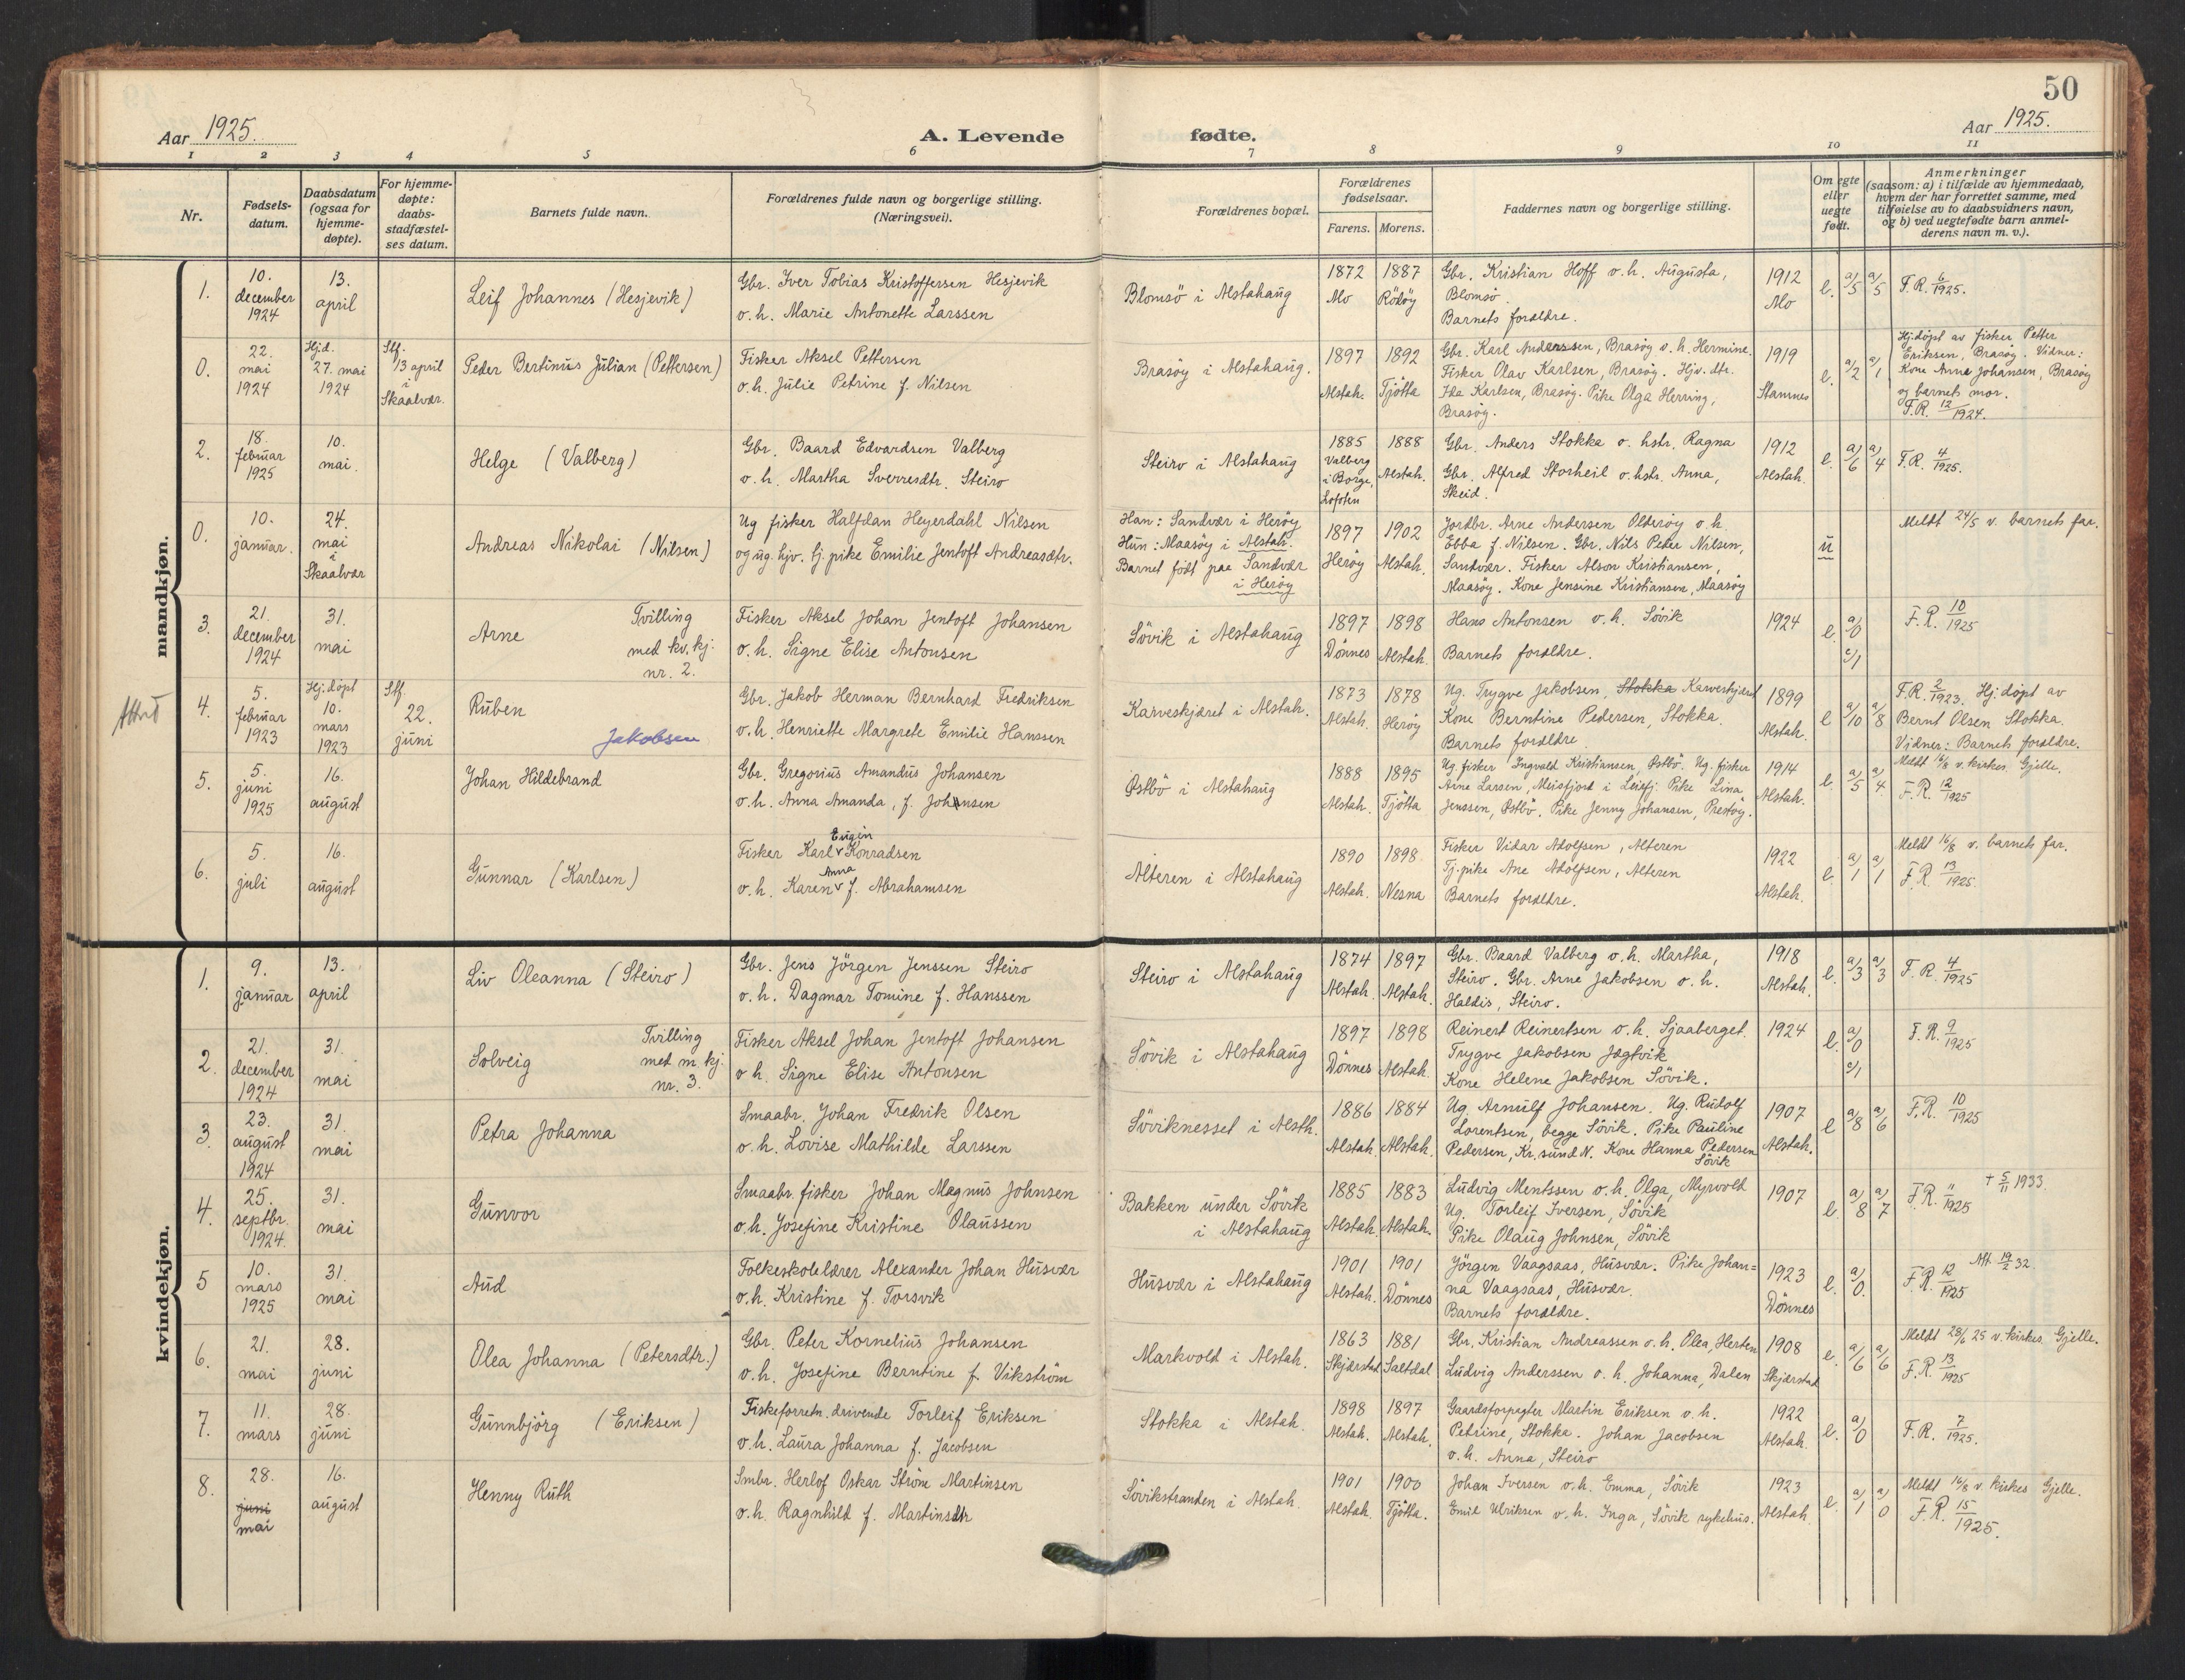 50
Aar 1925.
A. Levende
fødte.
Aar 1925.
1 2 3 4 5 6 7 8 9 10 11
Nr.
Fødsels-
datum.
Daabsdatum
(ogsaa for
hjemme-
døpte).
For hjemme-
døpte:
daabs-
stadfæstel-
ses datum.
Barnets fulde navn.
Forældrenes fulde navn og borgerlige stilling.
(Næringsvei).
Forældrenes bopæl.
Forældrenes
fødselsaar.
Farens. Morens.
Faddernes navn og borgerlige stilling.
Om egte
eller
uegte
født.
Anmerkninger
(saasom: a) i tilfælde av hjemmedaab,
hvem der har forrettet samme, med
tilføielse av to daabsvidners navn,
og b) ved uegtefødte barn anmel-
derens navn m. v.).
mandkjøn.
1.
10.
december
1924
13.
april
Leif Johannes (Hesjevik)
Gbr. Iver Tobias Kristoffersen Hesjevik
o. h. Marie Antonette Larssen
Blomsö i Alstahaug
1872
Mo
1887
Rödöy
Gbr. Kristian Hoff o. h. Augusta,
Blomsö.
Barnets forældre.
1912
Mo
e.
a/5
a/5
F. R. 6/1925.
0.
22.
mai
1924
Hjd.
27. mai
1924
Stf.
13 april
i
Skaalvær.
Peder Bertinus Julian (Pettersen)
Fisker Aksel Pettersen
o. h. Julie Petrine f. Nilsen
Brasöy i Alstahaug.
1897
Alstah.
1892
Tjötta
Gbr. Karl Anderssen, Brasöy o. h. Hermine.
Fisker Olav Karlsen, Brasöy. Hjv. dtr.
Ida Karlsen, Brasöy. Pike Olga Herring,
Brasöy.
1919
Stamnes
e.
a/2
a/1
Hj.döpt av fisker Petter
Eriksen, Brasöy. Vidner:
Kone Anna Johansen, Brasöy
og barnets mor.
F. R. 12/1924.
2.
18.
februar
1925
10.
mai.
Helge (Valberg)
Gbr. Baard Edvardsen Valberg
o. h. Martha Sverresdtr. Steiro
Steiro i Alstahaug
1885
Valberg
i Borge,
Lofoten
1888
Alstah.
Gbr. Anders Stokka o. hstr. Ragna
Gbr. Alfred Storheil o. hstr. Anna,
Skeid.
1912
Alstah.
e.
a/6
a/4
F. R. 4/1925.
0.
10.
januar.
24.
mai
i
Skaalvær
Andreas Nikolai (Nilsen)
Ug fisker Halfdan Heyerdahl Nilsen
og ug. hjv. tj. pike Emilie Jentoft Andreasdtr.
Han: Sandvær i Heröy
Hun: Maasöy i Alstah.
Barnet födt paa Sandvær
i Heröy
1897
Heröy
1902
Alstah.
Jordbr. Arne Andersen Olderöy o. h.
Ebba f. Nilsen. Gbr. Nils Peter Nilsen,
Sandvær. Fisker Alson Kristiansen,
Maasöy. Kone Jensine Kristiansen, Maasöy
u
Meldt 24/5 v. barnets far.
3.
21.
december
1924
31.
mai
Arne
Tvilling
med kv. kj.
nr. 2.
Fisker Aksel Johan Jentoft Johansen
o. h. Signe Elise Antonsen
Sövik i Alstahaug
1897
Dönnes
1898
Alstah.
Hans Antonsen o. h. Sövik
Barnets forældre.
1924
e.
a/0
c/1
F. R. 10/1925
4.
5.
februar
1923
Hj.döpt
10.
mars
1923
Stf.
22.
juni
Ruben
Jakobsen
Gbr. Jakob Herman Bernhard Fredriksen
o. h. Henriette Margrete Emilie Hanssen
Karveskjæret i Alstah.
1873
Alstah.
1878
Heröy
Ug. Trygve Jakobsen, Stokka Karveskjæret
Kone Berntine Pedersen, Stokka.
Barnets forældre
1899
Alstah.
e
a/10
a/8
F. R. 2/1923. Hj. döpt av
Bernt Olsen Stokka.
Vidner: Barnets forældre.
5.
5.
juni
1925
16.
august
Johan Hildebrand
Gbr. Gregorius Amandus Johansen
o. h. Anna Amanda, f. Johnsen
Östbö i Alstahaug
1888
Alstah.
1895
Tjötta
Ug fisker Ingvald Kristiansen, Östbö. Ug. fisker
Arne Larsen, Meisfjord i Leirfj. Pike Lina
Jenssen, Östbö. Pike Jenny Johansen, Prestöy.
1914
Alstah.
e.
a/5
a/4.
Meldt 16/8 v. kirkes. Gjelle.
F. R. 12/1925
6.
5.
juli
16.
august
Gunnar (Karlsen)
Eugen
Fisker Karl Konradsen
Anna
o. h. Karen f. Abrahamsen
Alteren i Alstahaug
1890
Alstah.
1898
Nesna
Fisker Vidar Adolfsen, Alteren
Tj. pike Ane Adolfsen, Alteren
Barnets forældre.
1922
Alstah.
e.
a/1
a/1
Meldt 16/8 v. barnets far.
F. R. 13/1925.
kvindekjøn.
1.
9.
januar
13.
april
Liv Oleanna (Steiro)
Gbr. Jens Jörgen Jenssen Steiro
o. h. Dagmar Tomine f. Hanssen
Steiro i Alstahaug
1874
Alstah.
1897
Alstah.
Gbr. Baard Valberg o. h. Martha,
Steiro. Gbr. Arne Jakobsen o. h.
Haldis, Steiro.
1918
Alstah.
e.
a/3
a/3
F. R. 4/1925
2.
21.
december
1924
31.
mai
Solveig
Tvilling
med m. kj.
nr. 3.
Fisker Aksel Johan Jentoft Johansen
o h. Signe Elise Antonsen
Sövik i Alstahaug
1897
Dönnes
1898
Alstah.
Reinert Reinertsen o. h. Sjaaberget.
Trygve Jakobsen Jægtvik
Kone Helene Jakobsen Sövik.
1924
e.
a/0
c/1
F. R. 9/1925
3.
23.
august
1924
31.
mai
Petra Johanna
Smaabr. Johan Fredrik Olsen
o. h. Lovise Mathilde Larssen
Söviknesset i Alsth.
1886
Alstah.
1884
Alstah.
Ug. Arnulf Johansen. Ug. Rudolf
Lorentsen, begge Sövik. Pike Pauline
Pedersen, Kr. sund N. Kone Hanna Pedersen
Sövik
1907
Alstah.
e
a/8
a/6
F. R. 10/1925
4.
25.
septbr.
1924.
31.
mai
Gunvor
Smaabr. fisker Johan Magnus Johnsen
o. h. Josefine Kristine Olaussen
Bakken under Sövik
i Alstahaug
1885
Alstah.
1883
Alstah.
Ludvig Mentssen o. h. Olga, Myrvold
Ug. Torleif Iversen, Sövik
Pike Olaug Johnsen, Sövik
1907
e.
a/8
a/7
F. R. 11/1925
+ 5/11 1933.
5
10.
mars
1925
31.
mai
Aud
Folkeskolelærer Alexander Johan Husvær
o. h. Kristine f. Torsvik
Husvær i Alstahaug
1901
Alstah.
1901
Dönnes
Jörgen Vaagsaas, Husvær. Pike Johan=
na Vaagsaas, Husvær.
Barnets forældre.
1923
Dönnes
e.
a/0.
F. R. 12/1925
Att. 19/2 32.
6.
21.
mai
28.
juni
Olea Johanna (Petersdtr.)
Gbr. Peter Kornelius Johansen
o. h. Josefine Berntine f. Vikström
Markvold i Alstah.
1863
Skjærstad
1881
Saltdal
Gbr. Kristian Andreassen o. h. Olea, Herten
Ludvig Anderssen o. h. Johanna, Dalen
1908
Skjærstad
e.
a/6
a/6
Meldt 28/6 25 v. kirkes. Gjelle.
F. R. 13/1925
7.
11.
mars
28.
juni
Gunnbjörg (Eriksen)
Fiskeforretn. drivende Torleif Eriksen
o. h. Laura Johanna f. Jacobsen
Stokka i Alstah.
1898
Alstah.
1897
Alstah.
Gaardsforpagter Martin Eriksen o. h.
Petrine, Stokka. Johan Jacobsen
o. h. Anna, Steiro
1922
Alstah.
e.
a/0
F. R. 7/1925.
8.
28.
juni
mai
16.
august
Henny Ruth
Smbr. Herlof Oskar Ström Martinsen
o. h. Ragnhild f. Martinsdtr
Sövikstranden i Alstah.
1901
Alstah.
1900
Tjötta.
Johan Iversen o. h. Emma, Sövik
Emil Ulriksen o. h. Inga, Sövik sykehus.
1923
Alstah.
e.
a/1
a/0
Meldt 16/8 v. kirkes Gjelle.
F. R. 15/1925.